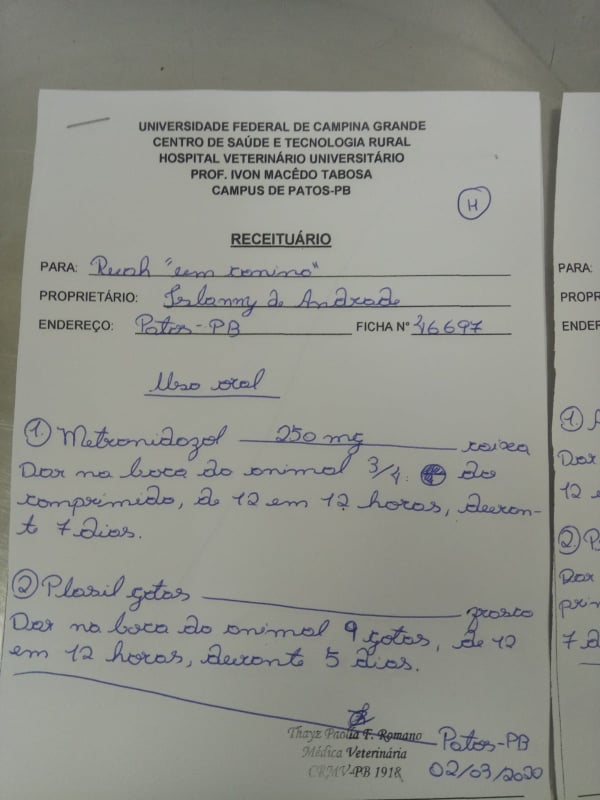 UNIVERSIDADE FEDERAL DE CAMPINA GRANDE
CENTRO DE SAÚDE E TECNOLOGIA RURAL
HOSPITAL VETERINÁRIO UNIVERSITÁRIO
PROF. IVON MACÊDO TABOSA
CAMPUS DE PATOS-PB
H
RECEITUÁRIO
PARA: "um canino"
PROPRIETÁRIO: de Andrade
ENDEREÇO: Patos-PB FICHA Nº 46697
Uso oral
① Metronidazol 250 mg caixa
Dar na boca do animal 3/4 do
comprimido, de 12 em 12 horas, duran-
te 7 dias.
② Plasil gotas frasco
Dar na boca do animal 9 gotas, de 12
em 12 horas, durante 5 dias.
Thayz Paolla F. Romano
Médica Veterinária
CRMV-PB 1918
Patos-PB
02/03/2020
PARA:
PROPR
ENDER
①
Dar
12 e
②
Dar
7 d